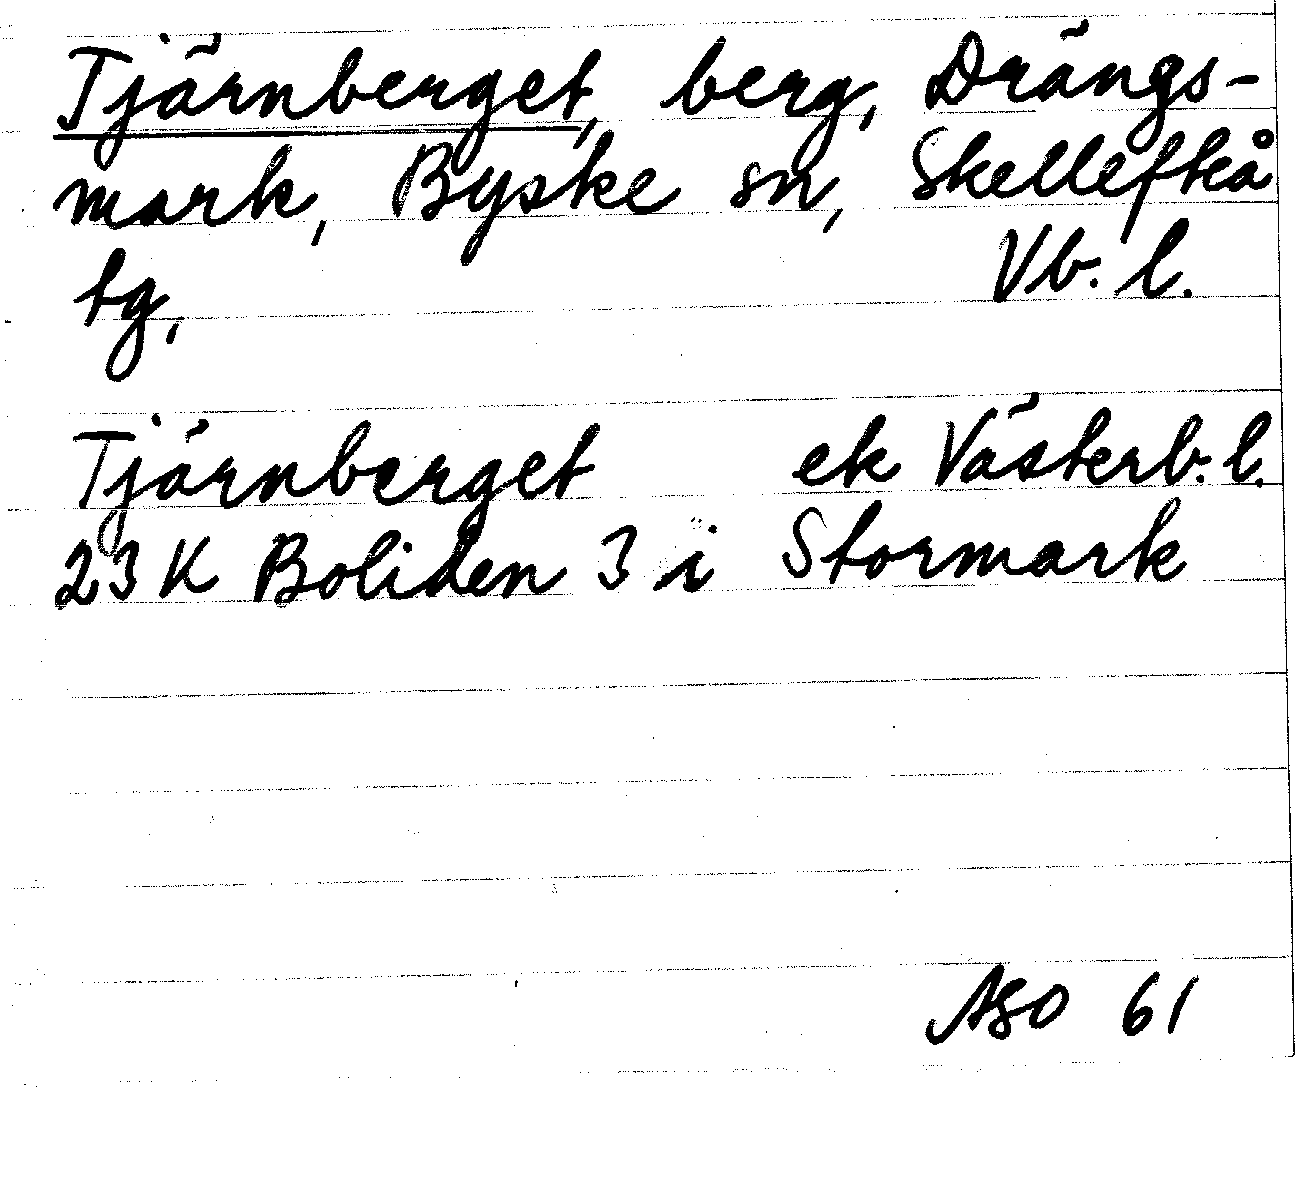 Tjärnberget, berg, Drängs-
mark, Byske sn, Skellefteå
tg, Vb. l.
Tjärnberget ek Västerb. l.
23 K Boliden 3 i Stormark
ASO 61